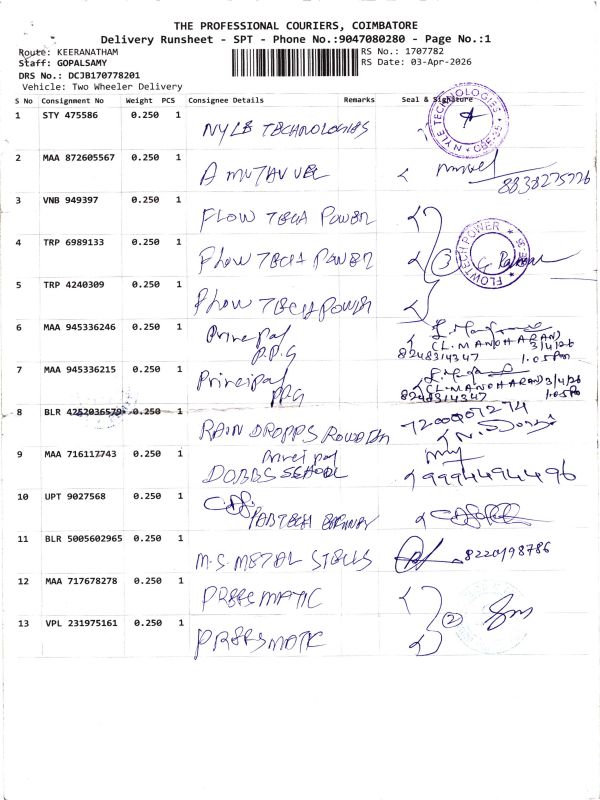 THE PROFESSIONAL COURIERS, COIMBATORE
Delivery Runsheet - SPT - Phone No.:9047080280 - Page No.:1
Route: KEERANATHAM
RS No.: 1707782
Staff: GOPALSAMY
RS Date: 03-Apr-2026
DRS No.: DCJB170778201
Vehicle: Two Wheeler Delivery
S No Consignment No Weight PCS Consignee Details Remarks Seal & Signature
1 STY 475586 0.250 1 NYLE TECHNOLOGIES
NYLE TECHNOLOGIES
2 MAA 872605567 0.250 1 AMUTHVVEL
8838275726
3 VNB 949397 0.250 1 FLOW TECH POWER
4 TRP 6989133 0.250 1 FLOW TECH POWER
3
FLOWTECH POWER
5 TRP 4240309 0.250 1 FLOW TECH POWER
6 MAA 945336246 0.250 1 Principal
P.P.G
(L. MANOHARAN)
3/4/26
8248314347 1.05 Pm
7 MAA 945336215 0.250 1 Principal
PPG
(L. MANOHARAN) 3/4/26
8248314347 1.05 Pm
8 BLR 4252036579 0.250 1 RAIN DROPPS
9 MAA 716117743 0.250 1 Principal
DOBBS SCHOOL
9994494496
10 UPT 9027568 0.250 1
11 BLR 5005602965 0.250 1 M.S. METAL STEELS
8220198786
12 MAA 717678278 0.250 1 PRESSMATIC
2
13 VPL 231975161 0.250 1 PRESSMATIC